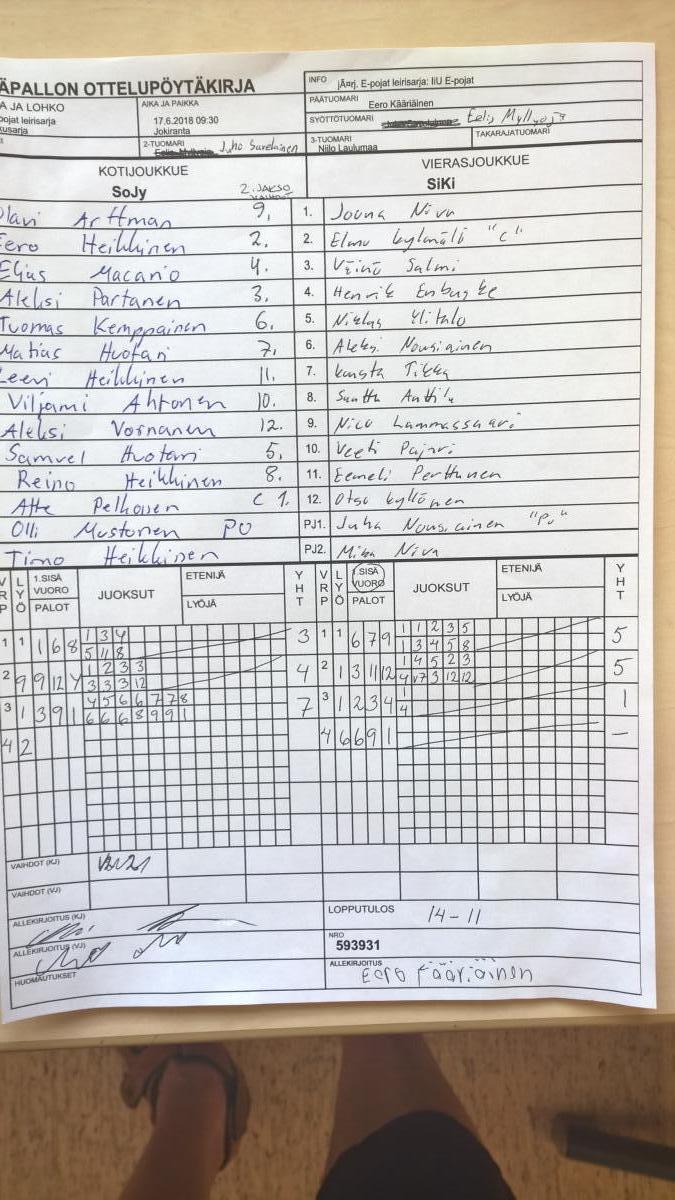 ÄPALLON OTTELUPÖYTÄKIRJA
INFO jÄ¤rj. E-pojat leirisarja: IiU E-pojat
A JA LOHKO
pojat leirisarja
AIKA JA PAIKKA
17.6.2018 09:30
Jokiranta
PÄÄTUOMARI Eero Kääriäinen
SYÖTTÖTUOMARI Eelis
2-TUOMARI Juho
3-TUOMARI
Niilo Laulumaa
TAKARAJATUOMARI
KOTIJOUKKUE
SoJy
2. JAKSO
VIERASJOUKKUE
SiKi
Arttman 9. 1. Joona Niva
Heikkinen 2. 2. Elmo Kylmälä "C"
Elias Macario 4. 3. Väinö Salmi
Aleksi Partanen 3. 4. Henrik
Tuomas Kemppainen 6. 5. Niklas Ylitalo
Matias Huotari 7. 6. Aleksi Nousiainen
Leevi Heikkinen 11. 7. Kunsta Tikka
Viljami Ahtonen 10. 8. Santtu Anttila
Aleksi Vornanen 12. 9. Nico Lammassaari
Samuel Huotari 5. 10. Veeti Pajari
Reino Heikkinen 8. 11. Eemeli Perttunen
Atte Pelkonen C 1. 12. Otso Kyllönen
Olli Mustonen PJ PJ1. Juha Nousiainen "PJ"
Timo Heikkinen PJ2. Mika Niva
VRP LYÖ 1.SISÄ VUORO PALOT JUOKSUT ETENIJÄ LYÖJÄ YHT VRP LYÖ 1.SISÄ VUORO PALOT JUOKSUT ETENIJÄ LYÖJÄ YHT
1 1 1 6 8 1 3 4 3 1 1 6 7 9 1 1 2 3 5 5
5 11 8 1 3 4 5 8
2 9 9 12 4 1 2 3 3 4 2 1 3 11 12 1 4 5 2 3 5
3 3 3 12 4 7 3 12 12
3 1 3 9 1 4 5 6 6 7 7 8 7 3 1 2 3 4 1 1
6 6 6 8 9 9 1 4
4 2 4 6 6 9 1 –
VAIHDOT (KJ)
VAIHDOT (VJ)
ALLEKIRJOITUS (KJ)
LOPPUTULOS 14-11
ALLEKIRJOITUS (VJ)
NRO
593931
HUOMAUTUKSET
ALLEKIRJOITUS
Eero Kääriäinen